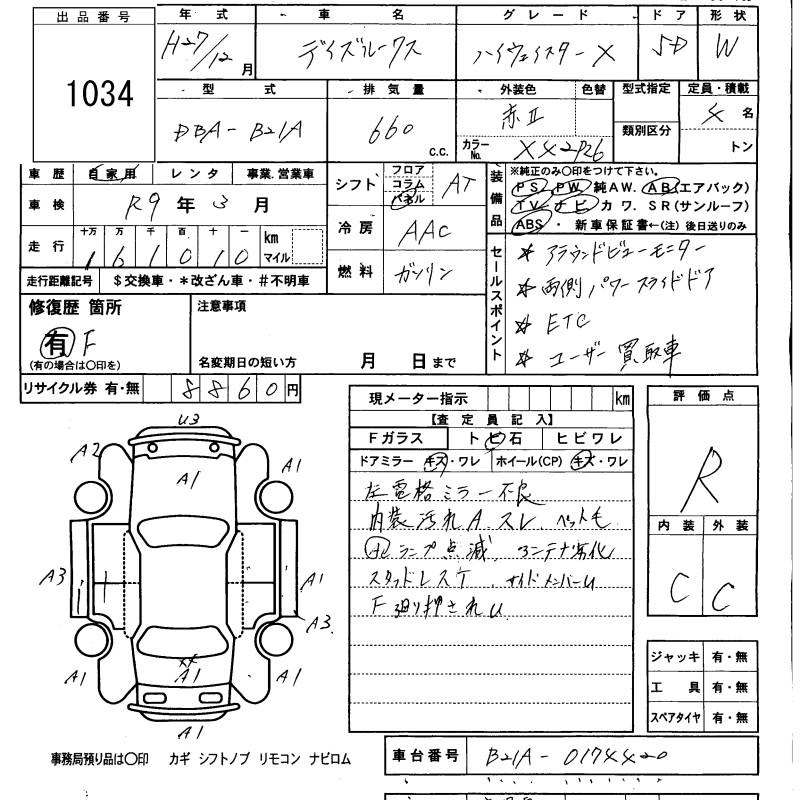 出品番号
1034
年式
H27/12月
車名
デイズルークス
グレード
ハイウェイスターX
ドア
5D
形状
W
型式
DBA-B21A
排気量
660 c.c.
外装色
赤II
色替
カラーNo.
XX2P26
型式指定
類別区分
定員・積載
4名
トン
車歴 自家用 レンタ 事業.営業車
車検 R9年3月
走行 十万 万 千 百 十 一 km マイル
161010
走行距離記号 $交換車・*改ざん車・#不明車
シフト フロア コラム パネル AT
冷房 AAC
燃料 ガソリン
装備品
※純正のみ〇印をつけて下さい。
PS PW 純AW. AB(エアバック)
TV ナビ カワ. SR(サンルーフ)
ABS ・ 新車保証書←(注)後日送りのみ
セールスポイント
* アラウンドビューモニター
* 両側パワースライドドア
* ETC
* ユーザー買取車
修復歴 箇所
有 F
(有の場合は〇印を)
注意事項
名変期日の短い方 月 日まで
リサイクル券 有・無 8860円
現メーター指示 km
【査定員記入】
Fガラス トビ石 ヒビワレ
ドアミラー キズ・ワレ ホイール(CP) キズ・ワレ
左電格ミラー不良
内装汚れA スレ ペット毛
ランプ点滅 コンテナ劣化
スタッドレスT サイドメンバーU
F廻り押されU
評価点
R
内装 外装
C C
ジャッキ 有・無
工具 有・無
スペアタイヤ 有・無
U3
A2
A1
A1
A3
A1
A3
A1
A1
A1
A1
事務局預り品は〇印 カギ シフトノブ リモコン ナビロム
車台番号 B21A-0174420